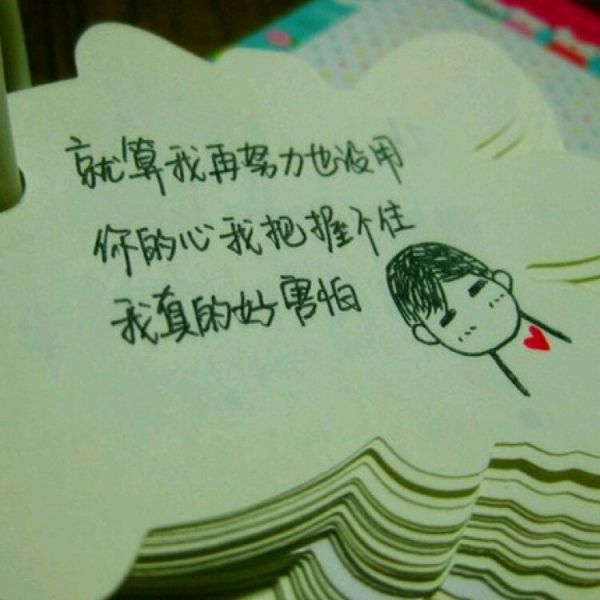 就算我再努力也没用
你的心我把握不住
我真的好害怕